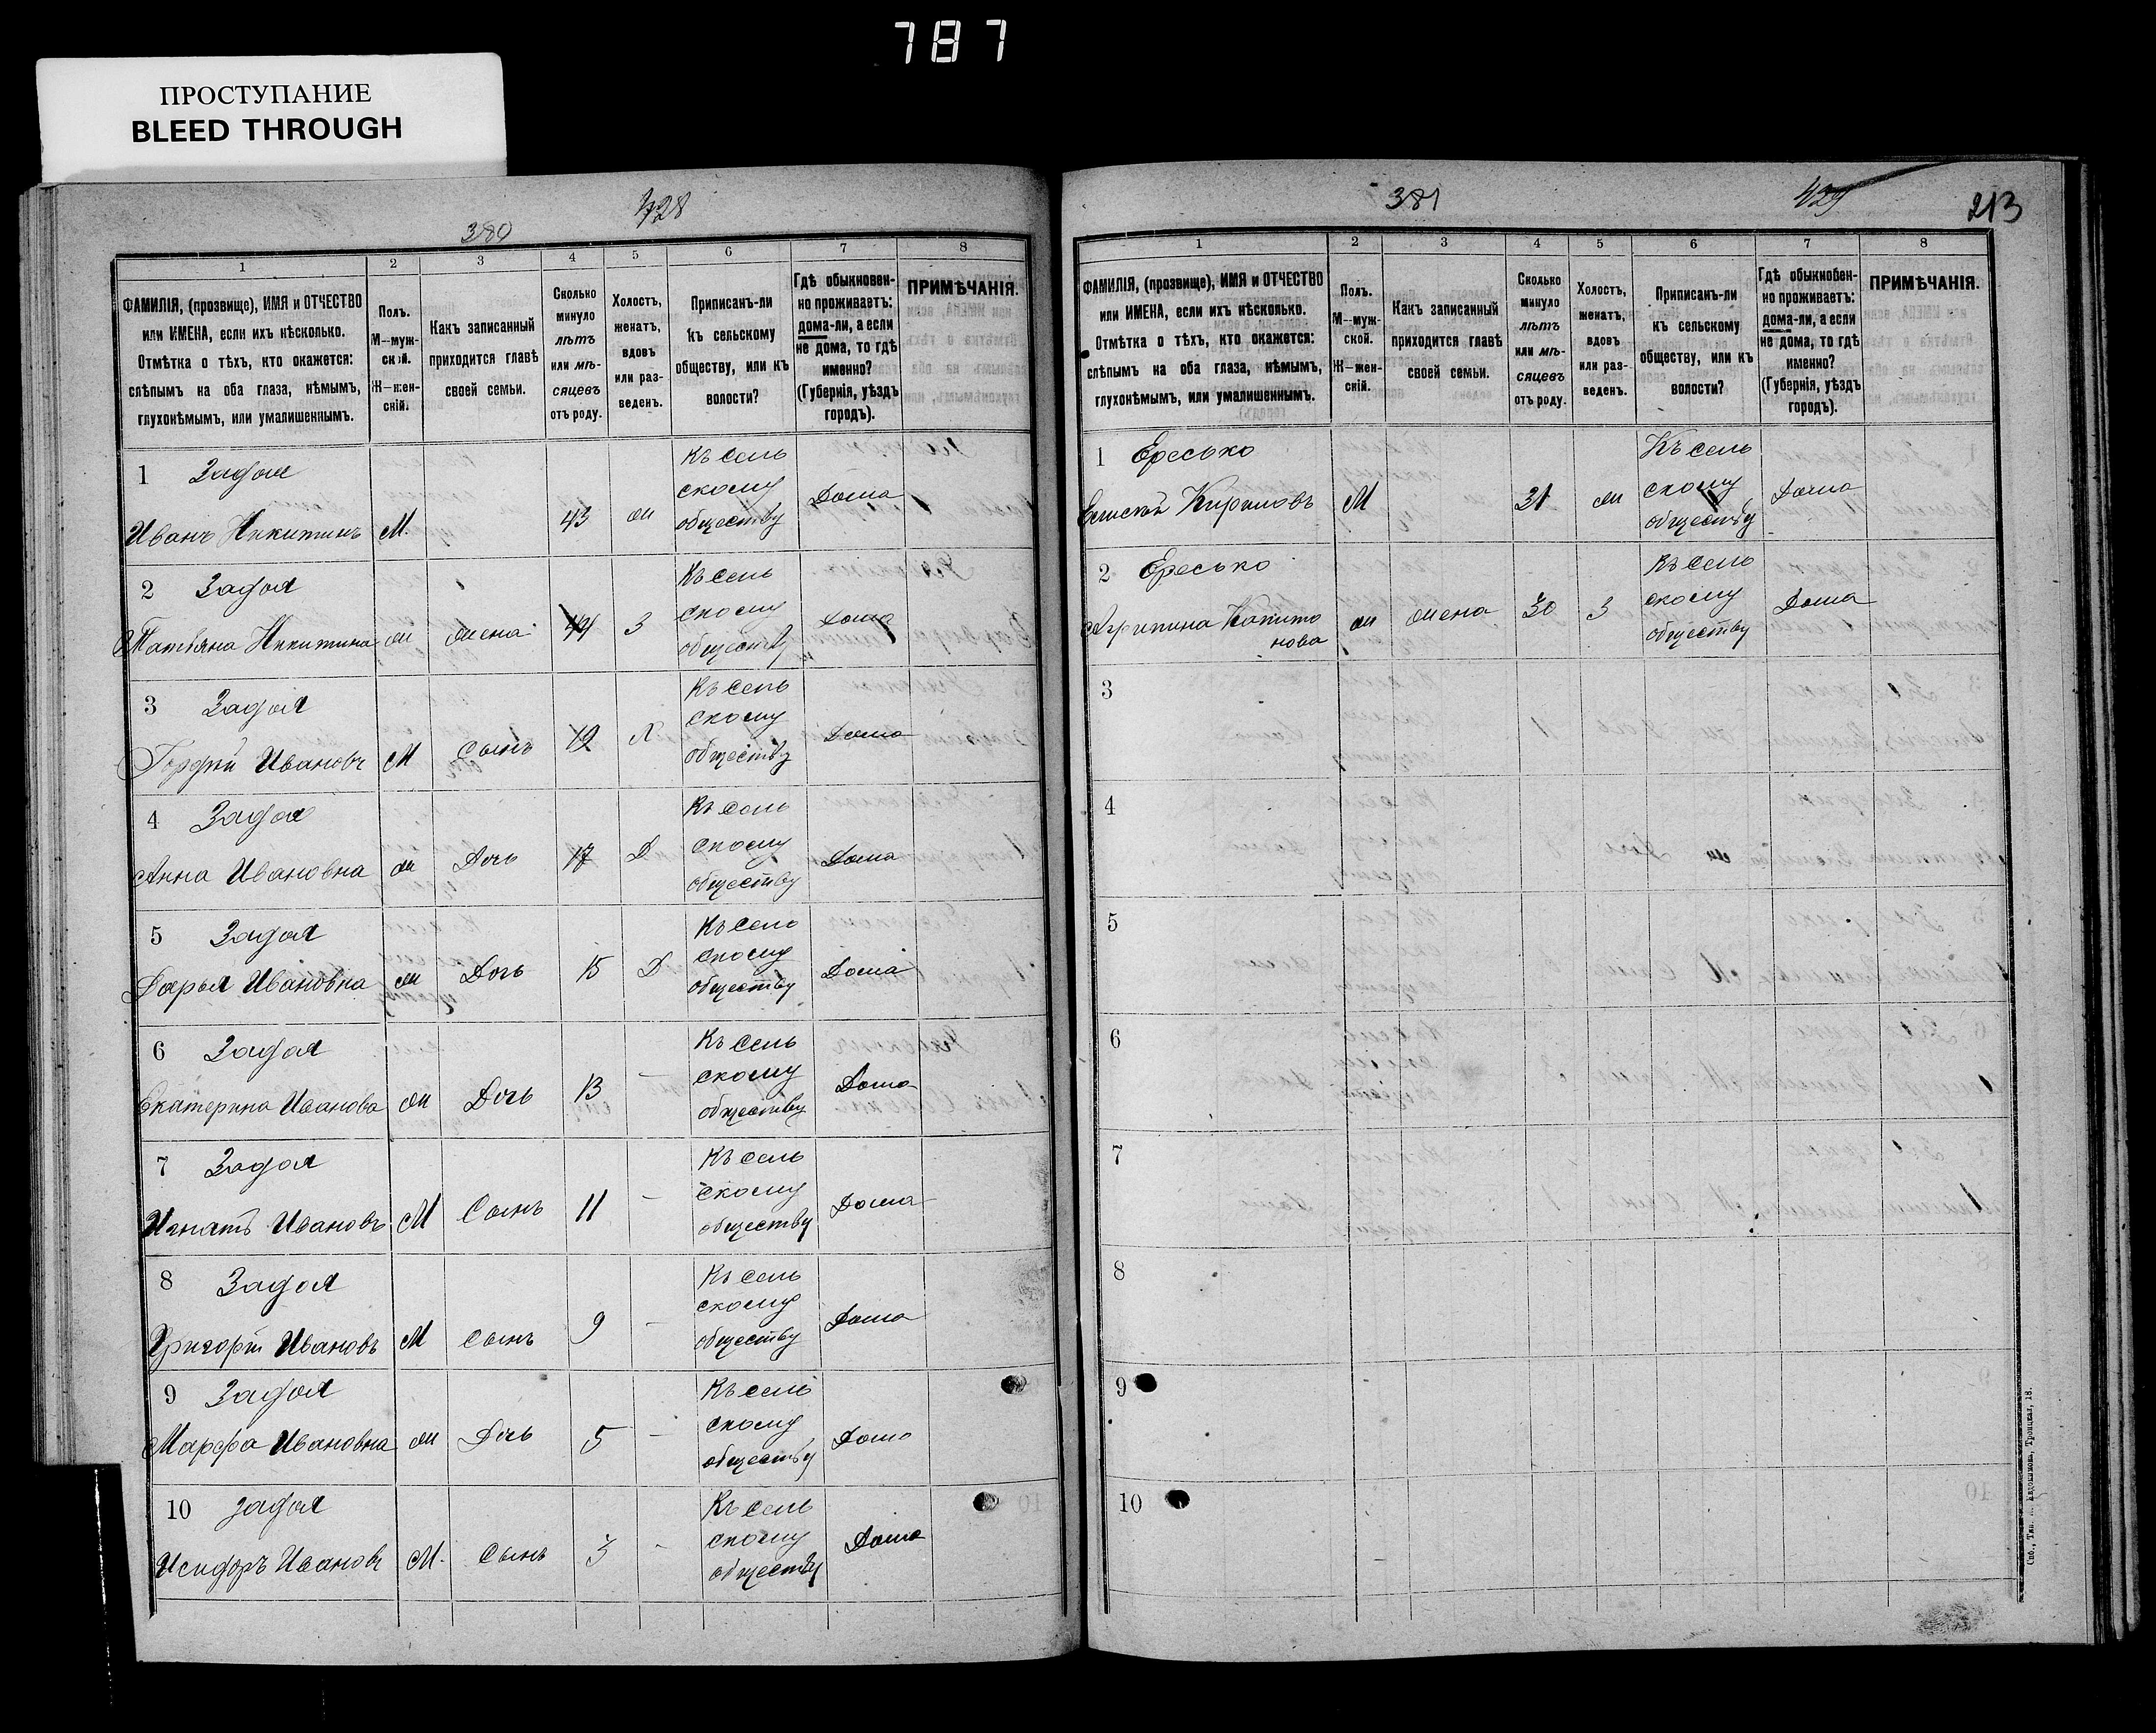 787
ПРОСТУПАНИЕ
BLEED THROUGH
380
428
1 2 3 4 5 6 7 8
ФАМИЛІЯ, (прозвище), ИМЯ и ОТЧЕСТВО
или ИМЕНА, если ихъ нѣсколько.
Отмѣтка о тѣхъ, кто окажется:
слѣпымъ на оба глаза, нѣмымъ,
глухонѣмымъ, или умалишеннымъ.
Полъ.
М—муж-
ской.
Ж—жен-
скій.
Какъ записанный
приходится главѣ
своей семьи.
Сколько
минуло
лѣтъ
или мѣ-
сяцевъ
отъ роду.
Холостъ,
женатъ,
вдовъ
или раз-
веденъ.
Приписанъ-ли
къ сельскому
обществу, или къ
волости?
Гдѣ обыкновен-
но проживаетъ:
дома-ли, а если
не дома, то гдѣ
именно?
(Губернія, уѣздъ
городъ).
ПРИМѢЧАНІЯ.
1 Задоя
Иванъ Никитинъ М. 43 ж
Къ сель
скому
обществу
Дома
2 Задоя
Татьяна Никитина ж жена 44 З
Къ сель
скому
обществу
Дома
3 Задоя
Гордѣй Ивановъ М Сынъ 19 Х
Къ сель
скому
обществу
Дома
4 Задоя
Анна Ивановна ж Дочь 17 Д
Къ сель
скому
обществу
Дома
5 Задоя
Дарья Ивановна ж Дочь 15 Д
Къ сель
скому
обществу
Дома
6 Задоя
Екатерина Иванова ж Дочь 13 -
Къ сель
скому
обществу
Дома
7 Задоя
Игнатъ Ивановъ М Сынъ 11 -
Къ сель
скому
обществу
Дома
8 Задоя
Григорій Ивановъ М Сынъ 9 -
Къ сель
скому
обществу
Дома
9 Задоя
Марфа Ивановна ж Дочь 5 -
Къ сель
скому
обществу
Дома
10 Задоя
Исидоръ Ивановъ М. Сынъ 3 -
Къ сель
скому
обществу
Дома
381
429
213
1 2 3 4 5 6 7 8
ФАМИЛІЯ, (прозвище), ИМЯ и ОТЧЕСТВО
или ИМЕНА, если ихъ нѣсколько.
Отмѣтка о тѣхъ, кто окажется:
слѣпымъ на оба глаза, нѣмымъ,
глухонѣмымъ, или умалишеннымъ.
Полъ.
М—муж-
ской.
Ж—жен-
скій.
Какъ записанный
приходится главѣ
своей семьи.
Сколько
минуло
лѣтъ
или мѣ-
сяцевъ
отъ роду.
Холостъ,
женатъ,
вдовъ
или раз-
веденъ.
Приписанъ-ли
къ сельскому
обществу, или къ
волости?
Гдѣ обыкновен-
но проживаетъ:
дома-ли, а если
не дома, то гдѣ
именно?
(Губернія, уѣздъ
городъ).
ПРИМѢЧАНІЯ.
1 Ересько
Кириловъ М 31 ж
Къ сель
скому
обществу
Дома
2 Ересько
Агрипина Капито
нова
ж жена 30 З
Къ сель
скому
обществу
Дома
3
4
5
6
7
8
9
10
Спб., Тип. Евдокимова, Троицкая, 18.